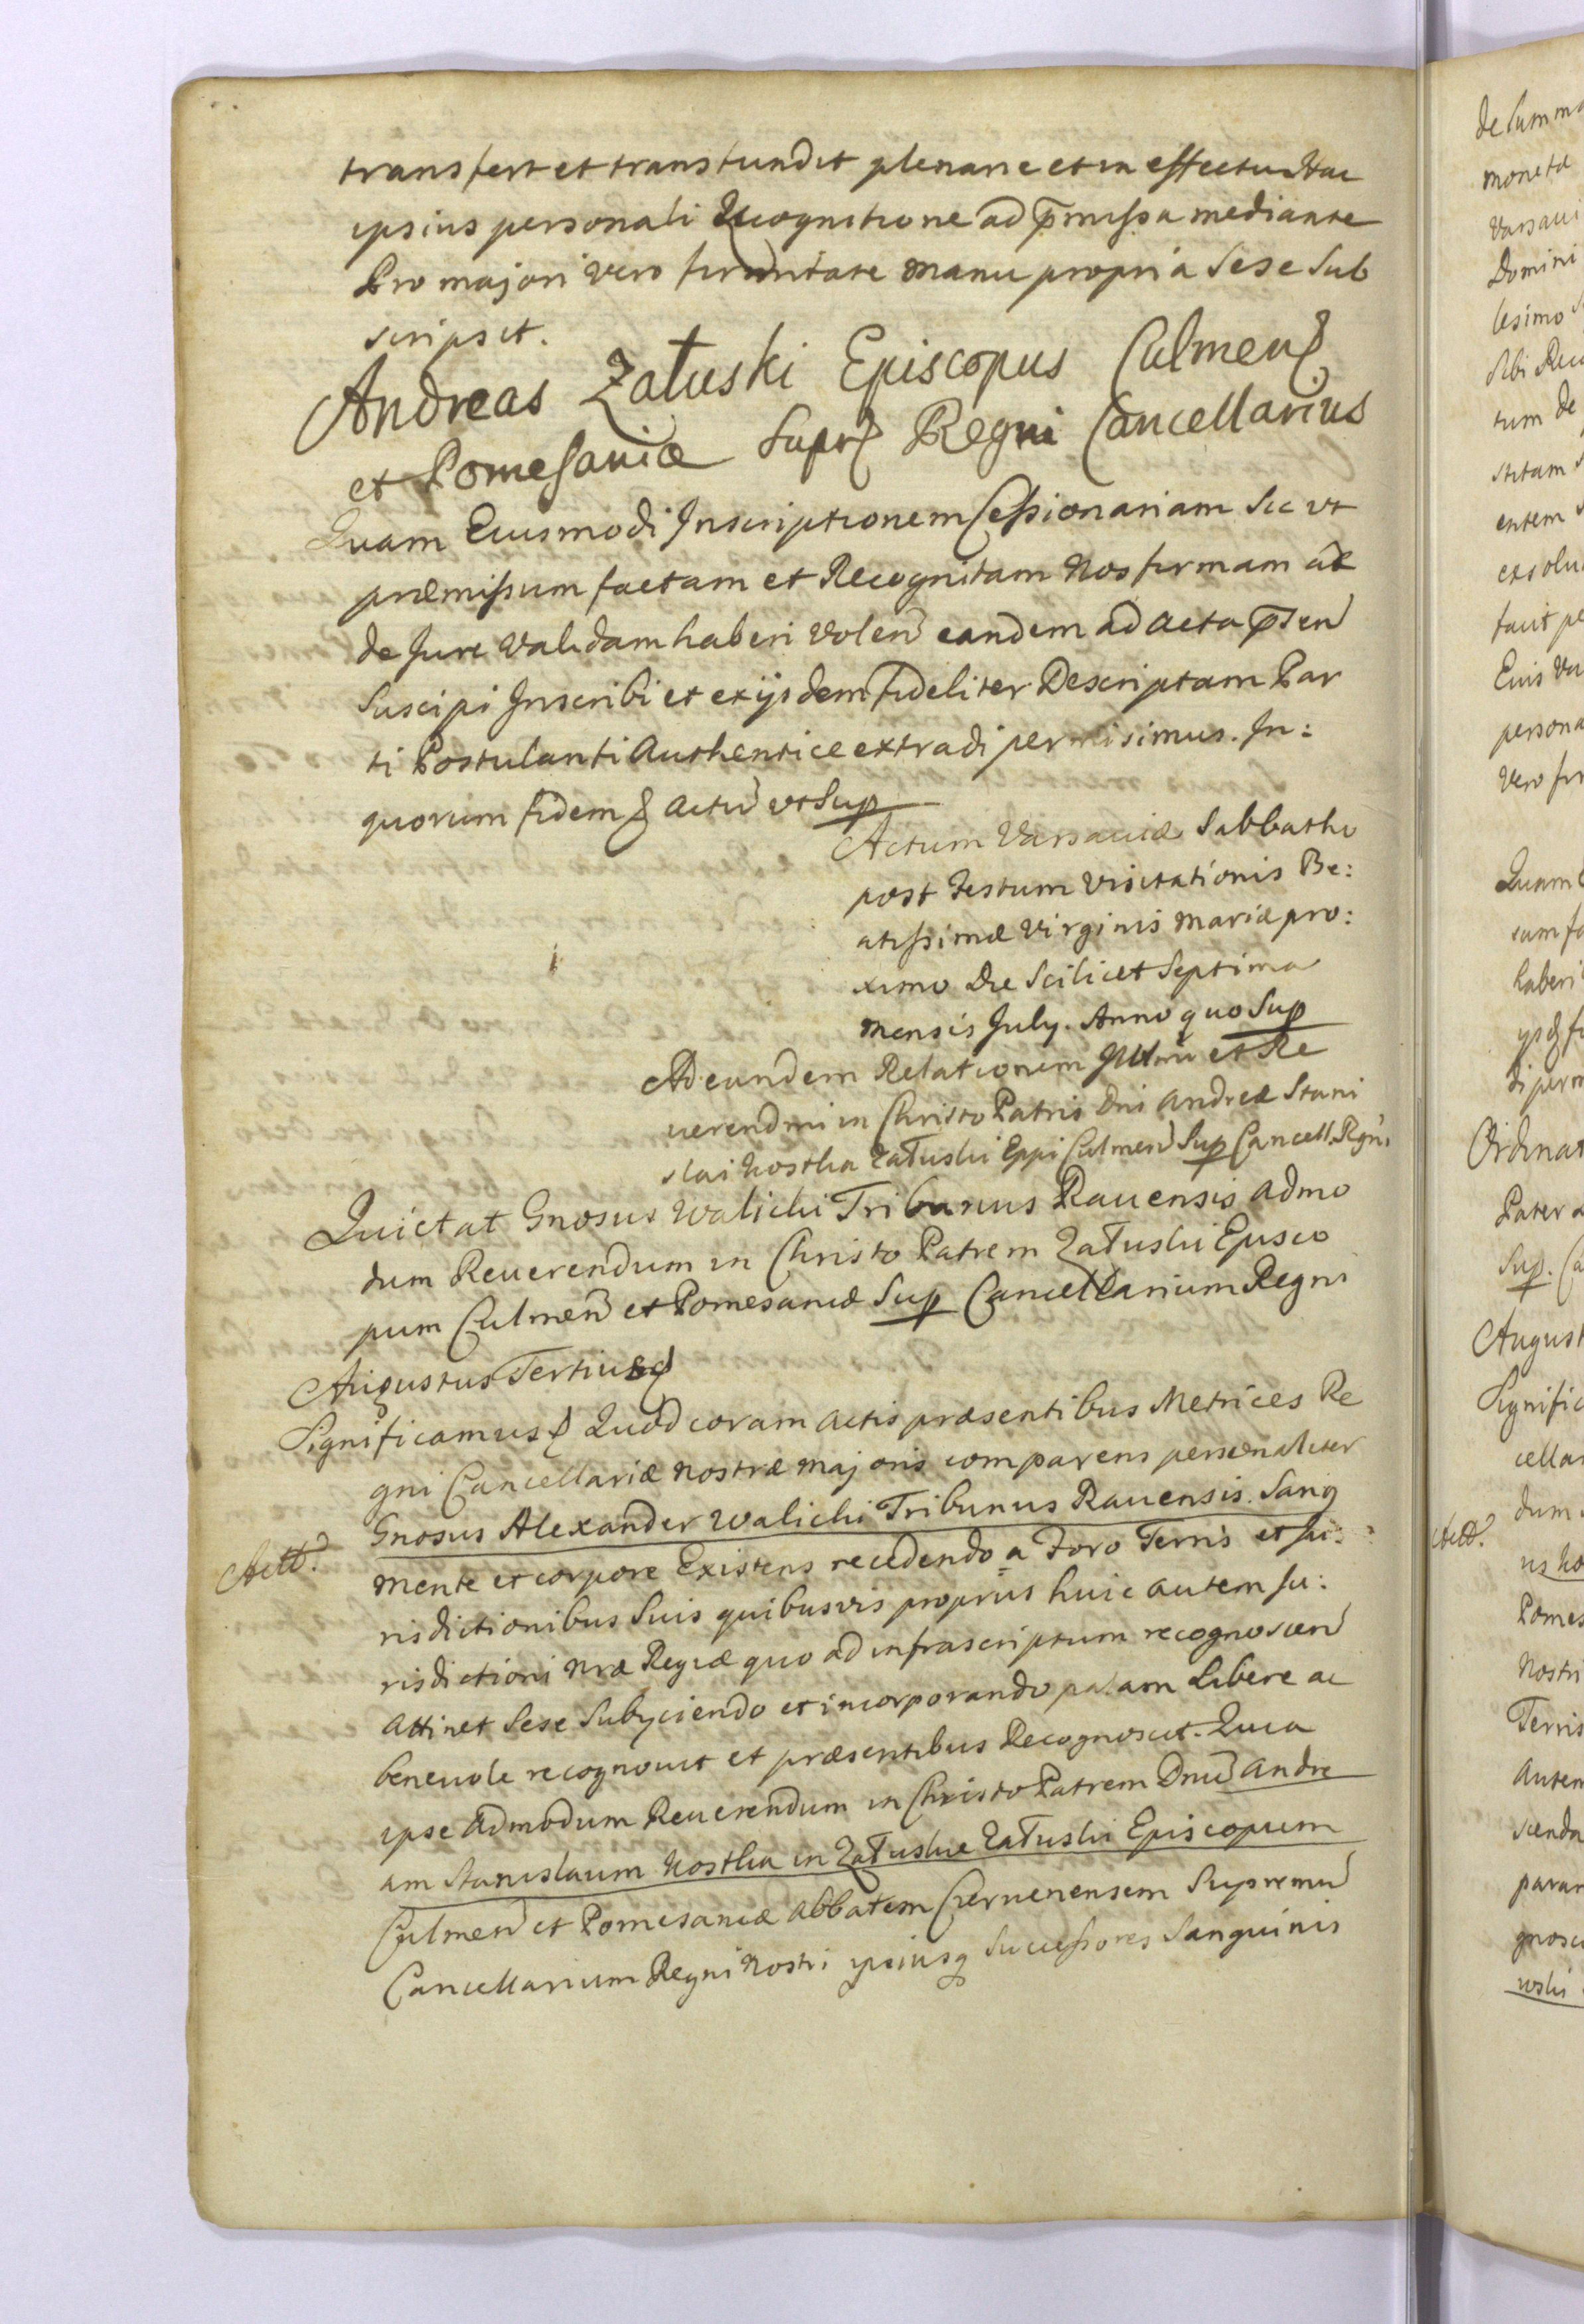 transfert et transfundit plenarie et in effectu Hac
ipsius personali Recognitione ad p̄missa mediante
Pro majori vero firmitate manu propria Sese Sub
scripsit.
Andreas Załuski Episcopus Culmens
et Pomesaniæ Supr Regni Cancellarius
Quam Eiusmodi Inscriptionem Cessionariam Sic ut
præmissum factam et Recognitam Nos firmam ac
de Jure Validam haberi Volen eandem ad Acta p̄sen
Suscipi Inscribi et exijsdem fideliter Descriptam Par
ti Postulanti Authentice extradi permisimus. In:
quorum fidem & Actu ut Sup
Actum Varsaviæ Sabbatho
post Festum Visitationis Be:
atissimæ Virginis Mariæ pro:
ximo Die Scilicet Septima
Mensis July. Anno quo Sup
Ad eandem Relationem Illmi et Re
verendmi in Christo Patris Dni Andreæ Stani
slai Kostka Załuski Eppi Culmen Sup Cancell. Regni
Quietat Gnosus Walicki Tribunus Ravensis admo
dum Reverendum in Christo Patrem Załuski Episco
pum Culmen et Pomesaniæ Sup Cancellarium Regni
Augustus Tertius &
Significamus & Quod coram Actis præsentibus Metrices Re
gni Cancellariæ Nostræ Majoris comparens personaliter
Gnosus Alexander Walicki Tribunus Ravensis. Sang
mente et corpore Existens recedendo a Foro Terris et Ju:
risdictionibus Suis quibusvis proprijs huic autem Ju:
risdictioni Nræ Regiæ quo ad infrascriptum recognoscen
Attinet Sese Subijciendo et incorporando palam Libere ac
benevole recognovit et præsentibus Recognoscit. Quia
ipse Admodum Reverendum in Christo Patrem Dnu Andre
am Stanislaum Kostka in Załuskie Załuski Episcopum
Culmen et Pomesaniæ Abbatem Czervenensem Supremu
Cancellarium Regni Nostri ipsiusq Successores Sanguinis
de Summa
moneta
Varsavi
Domini
tum de
entem
Eius
persona
Vero fir
Quam
haberi
Ordinar
Pater
Sup. Ca
August
Signific
cellar
dum
Pomes
Nostri
Terris
Autem
scenda